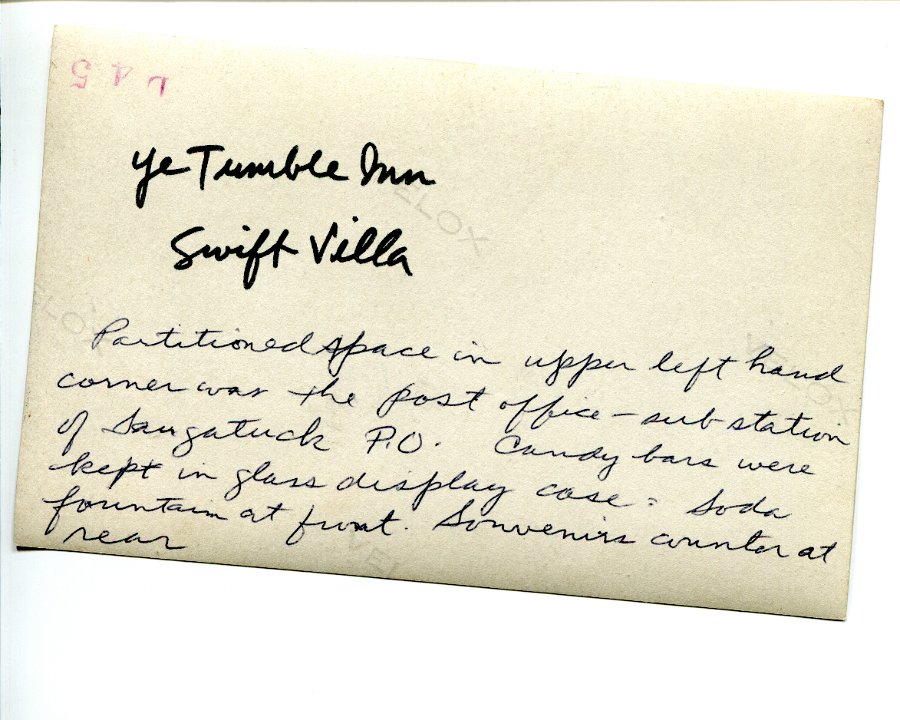 L45
Ye Tumble Inn
Swift Villa
Partitioned space in upper left hand
corner was the post office - sub station
of Saugatuck P.O. Candy bars were
kept in glass display case. Soda
fountain at front. Souvenirs counter at
rear
VELOX
VELOX
VELOX
VELOX